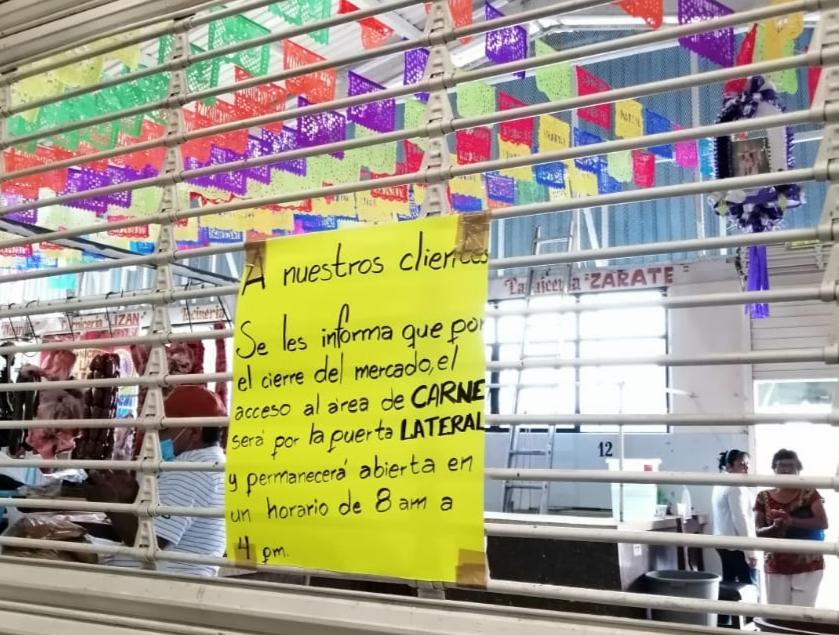 A nuestros clientes
Se les informa que por
el cierre del mercado, el
acceso al área de CARNE
será por la puerta LATERAL
y permanecerá abierta en
un horario de 8 am a
4 pm.
Carnicería "ZARATE"
12